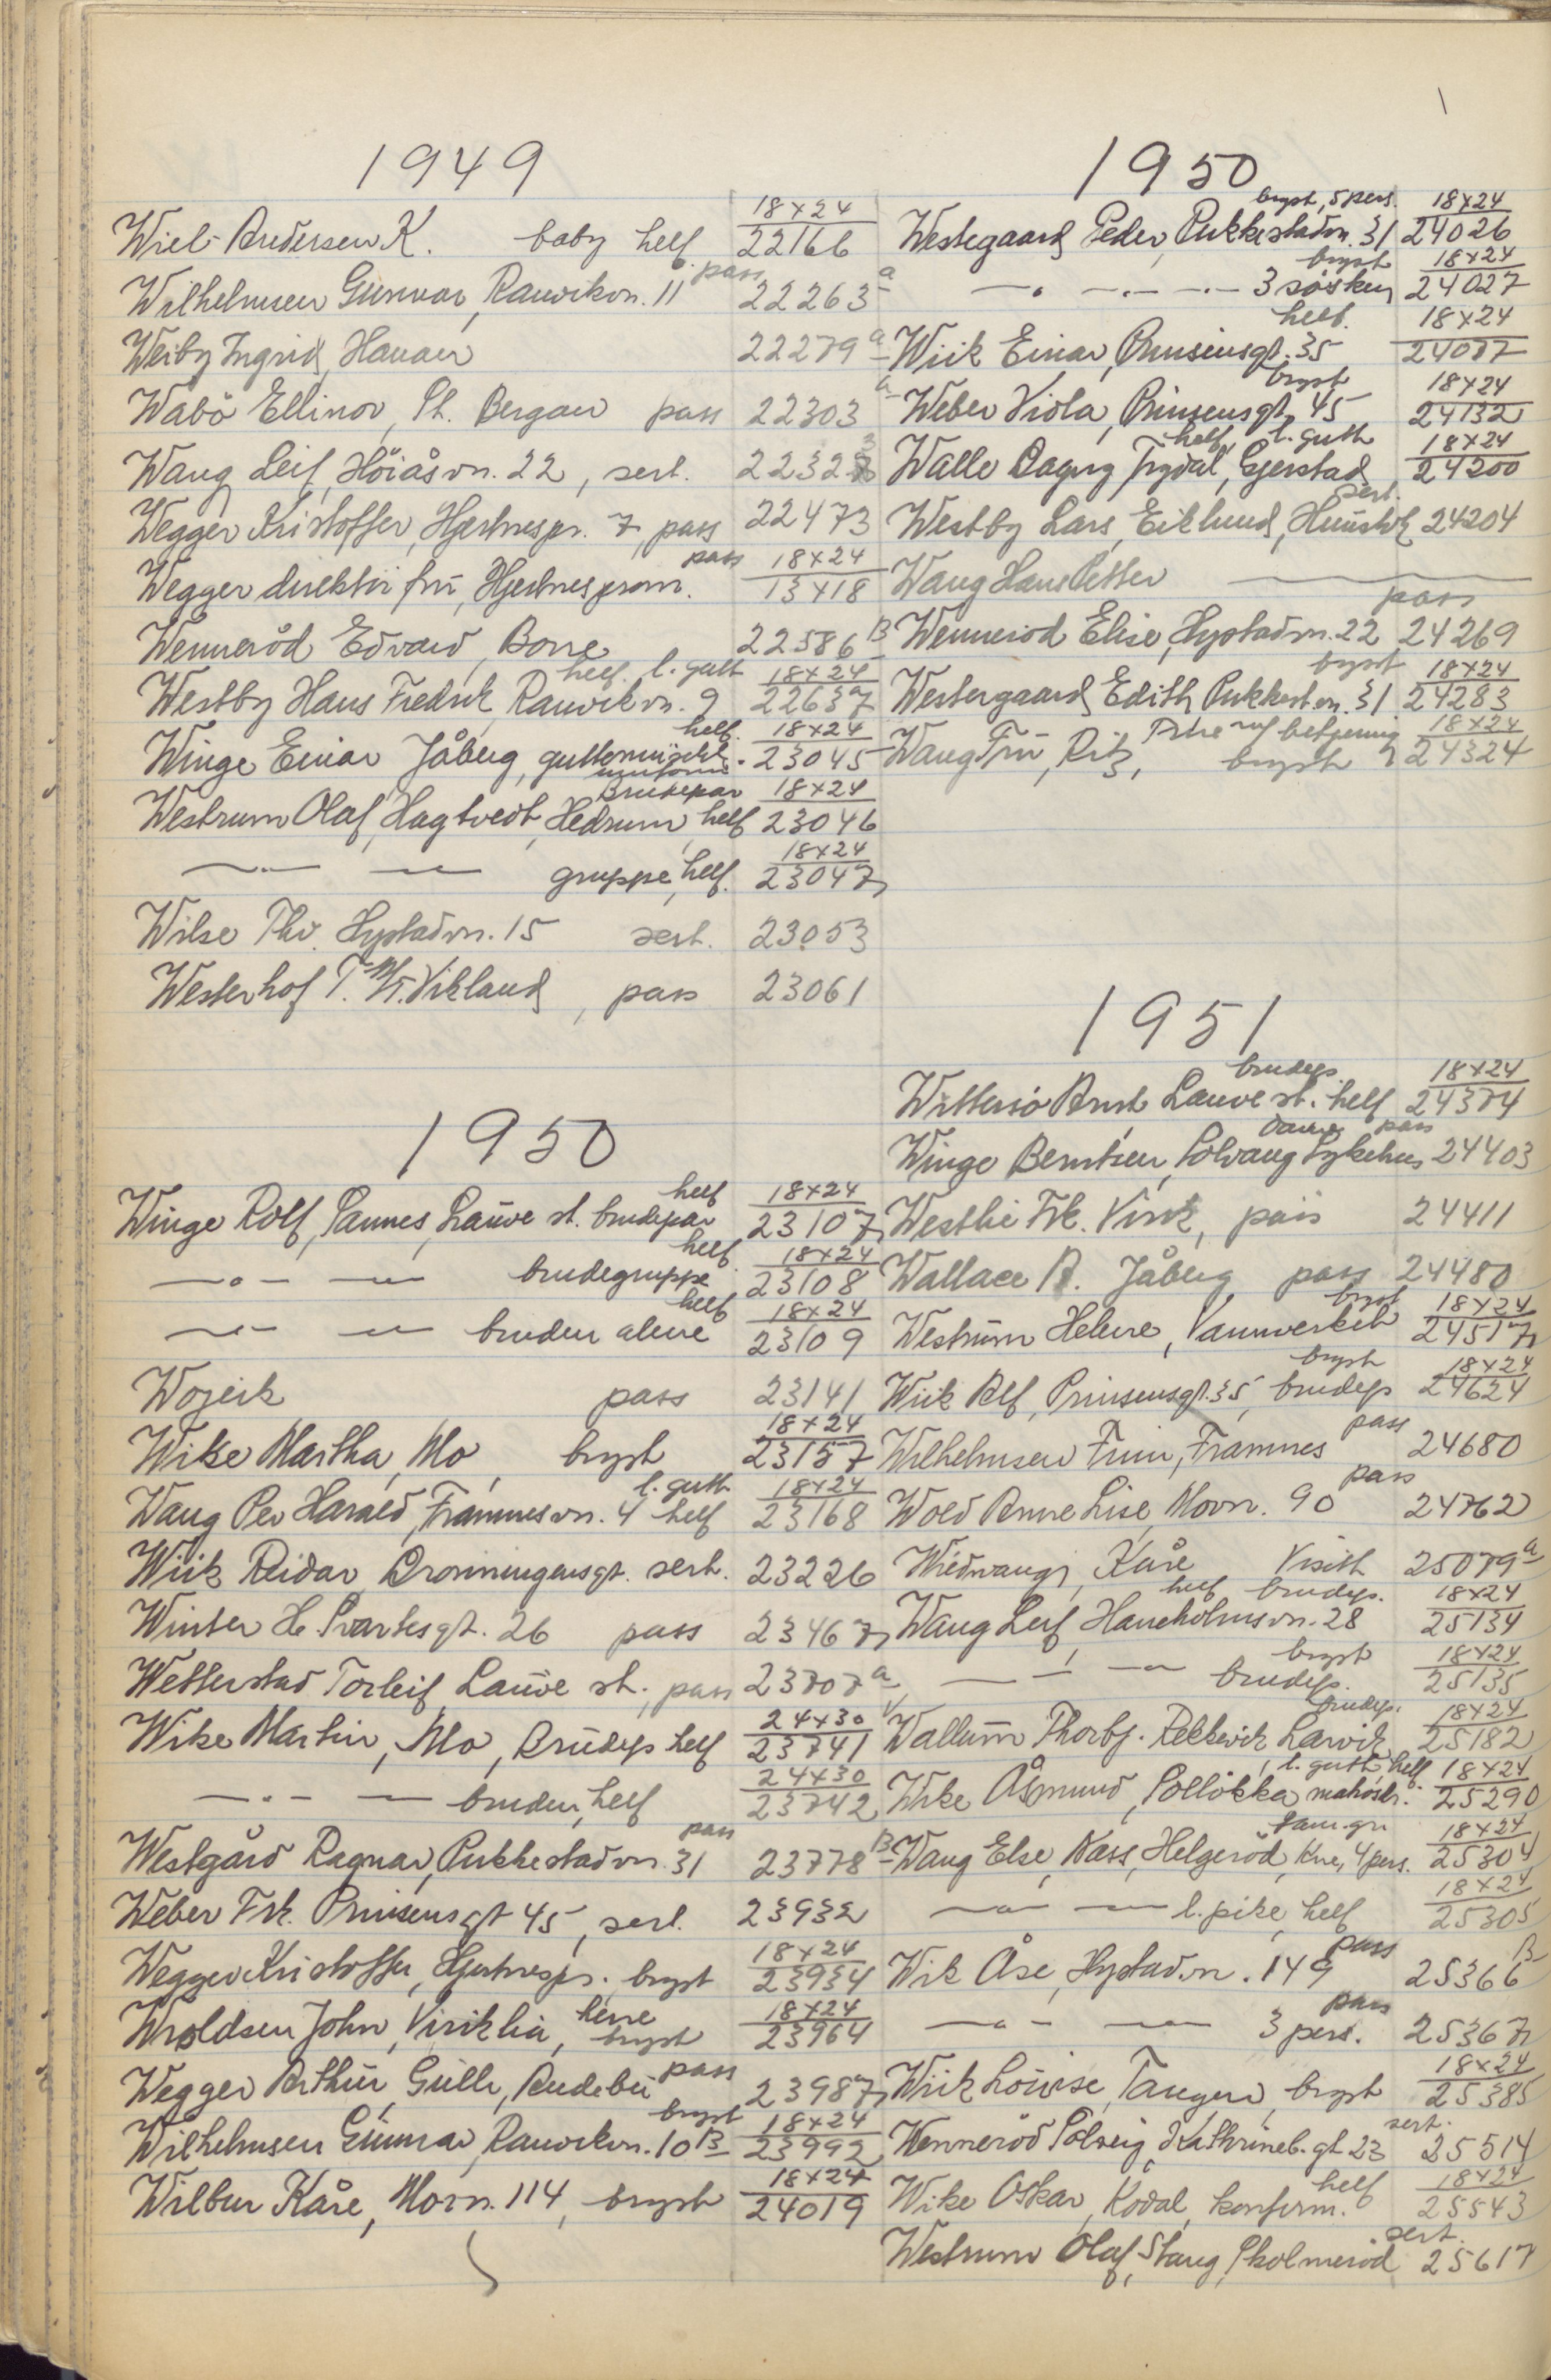 1949
Wiel-Andersen K. baby helf. 18x24 22166
Wilhelmsen Gunnar, Ranvikvn. 11 pass 22263 a
Weiby Ingrid, Hauan 22279 a
Wabö Ellinor, St. Bergan pass 22303 a
Wang Leif, Höiåsvn. 22, sert. 2232
Wegger Kristoffer, Hjertnespr. 7, pass 22473
Wegger direktör frü, Hjertnesprom. pass 18x24 13418
Wenneröd Edvard, Borre 22586 B
Westby Hans Fredrik, Ranvikvn. 9 helf. l. gutt 18x24 22637
Winge Einar Jåberg, guttemüsikk uniform helf. 18x24 23045
Westrum Olaf, Hagtvedt, Hedrum, Brudepar helf 18x24 23046
—〃— —〃— gruppe, helf. 18x24 23047
Wilse Thv. Hystadvn. 15 sert. 23053
Westerhof T. M/T. Vikland, pass 23061
1950
Winge Rolf, Sannes, Lauve st. brudepar helf 18x24 23107
—〃— —〃— brudegruppe helf. 18x24 23108
—〃— —〃— bruden alene helf 18x24 23109
Wojcik pass 23141
Wike Martha, Mo, bryst 18x24 23157
Wang Per Harald, Framnesvn. 4 l. gutt helf 18x24 23168
Wiik Reidar, Dronningensgt. sert. 23226
Winter H. Svartesgt. 26 pass 23467
Wetterstad Torleif, Lauve st., pass 23707 a
Wike Martin, Mo, Brüdep helf 24x30 23741
—〃— — bruden, helf 24x30 23742
Westgård Ragnar, Pukkestadvn. 31 pass 23778 B
Weber Frk. Prinsensgt 45, sert. 23932
Wegger Kristoffer, Hjertnespr. bryst 18x24 23934
Wroldsen John, Viriklia, herre bryst 18x24 23964
Wegger Arthur, Gülli, Rudebü pass 23987
Wilhelmsen Günnar, Ranvikvn. 10 B bryst 18x24 23992
Wilbur Kåre, Movn. 114, bryst 18x24 24019
1950
Westegaard Peder, Pukkestadvn. 31 bryst, 5 pers. 18x24 24026
—〃— —〃— 3 søsken bryst 18x24 24027
Wiik Einar, Prinsensgt. 35 helf. 18x24 24077
Weber Viola, Prinsensgt. 45 bryst 18x24 24132
Walle Dagny Trydal, Gjerstad helf, l. gutt 18x24 24200
Westby Lars, Eiklund, sert. 24204
Wang Hans Petter ———
Wennerod Elise, Hystadvn. 22 pass 24269
Westergaard Edith, Pukkest.vn. 31 bryst 18x24 24283
Wang Frü, Ritz, bryst 18x24 24324
1951
Wittersö Arnt, Lauve st. brudep. helf 18x24 24374
Winge Berntsen, Solvang Sykehus dame pass 24403
Westlie Frk. Virik, pass 24411
Wallace A. Jåberg pass 24480
Westrüm Helene, Vannverket bryst 18x24 24517
Wiik Alf, Prinsensgt. 35, brudep bryst 18x24 24624
Wilhelmsen Finn, Framnes pass 24680
Wold Anne Lise, Movn. 90 pass 24762
Wiedwang, Kåre Visitt 25079 a
Wang Leif, Haneholmsvn. 28 helf brudep. 18x24 25134
—〃— —〃— brudep. bryst 18x24 25135
Wallüm Thorbj. Rekkevik Larvik brudep. 18x24 25182
Wike Åsmund, Solløkka matrosdr. l. gutt, helf 18x24 25290
Wang Else, Nass, Helgeröd, Kne, 4 pers. fam.gr. 18x24 25304
—〃— —〃— l. pike, helf 18x24 25305
Wik Åse, Hystadvn. 149 pass 25366 B
—〃— —〃— 3 pers. pass 25367
Wiik Löuise, Tangen, bryst 18x24 25385
Wenneröd Solveig, Kathrineb. gt 23 sert. 25514
Wike Oskar, Kodal, konfirm. helf 18x24 25543
Westrum Olaf, Stang, Skolmeröd sert. 25617